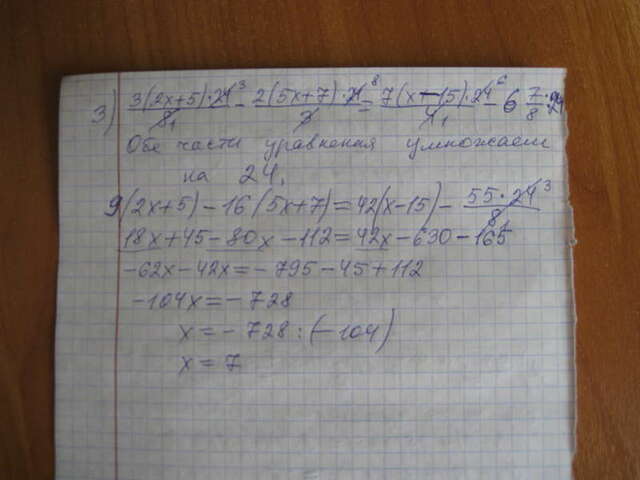 3) 3(2x+5)·24³/8₁ - 2(5x+7)·24⁸/3 = 7(x-15)·24⁶/4₁ - 6 7/8·24
Обе части уравнения умножаем
на 24.
9(2x+5)-16(5x+7)=42(x-15)- 55·24³/8₁
18x+45-80x-112=42x-630-165
-62x-42x=-795-45+112
-104x=-728
x=-728:(-104)
x=7